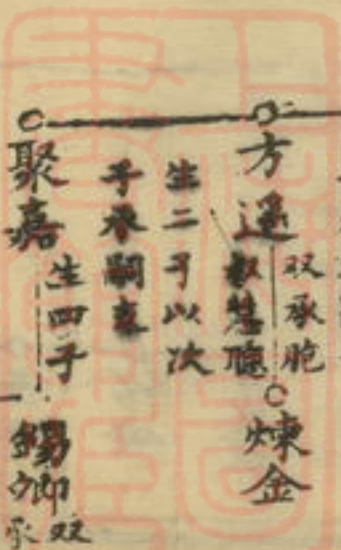 方遥
双承胞
叔慧聰
生二子以次
子承嗣
煉金
聚嘉
生四子
錫卿
双承